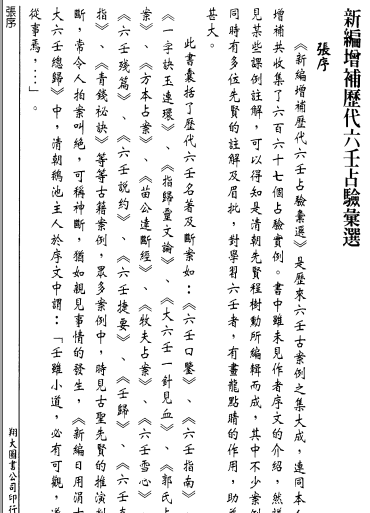 新編增補歷代六壬占驗彙選
張序
《新編增補歷代六壬占驗彙選》是歷來六壬古案例之集大成，連同本
增補共收集了六百六十七個占驗實例。書中雖未見作者序文的介紹，然
見某些課例註解，可以得知是清朝先賢程樹勳所編輯而成，其中不少案例
同時有多位先賢的註解及眉批，對學習六壬者，有畫龍點睛的作用，助益
甚大。
此書囊括了歷代六壬名著及斷案如：《六壬口鑒》、《六壬指南》、
《一字訣玉連環》、《指歸靈文論》、《大六壬一針見血》、《郭氏占
案》、《方本占案》、《苗公達斷經》、《牧夫占案》、《六壬雪心》、
《六壬殘篇》、《六壬說約》、《六壬捷要》、《壬歸》、《六壬
指》、《青錢秘訣》等等古籍案例，眾多案例中，時見古聖先賢的推演
斷，常令人拍案叫絕，可稱神斷，猶如親見事情的發生，《新編日用涓
大六壬總歸》中，清朝鵝池主人於序文中謂：「壬雖小道，必有可觀，
從事焉，...」。
張序
翔大圖書公司印行